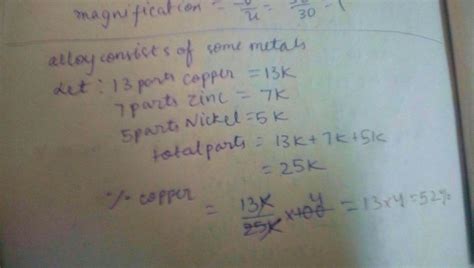 magnification = -v/u = 30/30 = 1
alloy consists of some metals
Let : 13 parts copper = 13K
7 parts zinc = 7K
5 parts Nickel = 5K
total parts = 13K + 7K + 5K
= 25K
% copper = 13K/25K × 100 4 = 13 × 4 = 52%